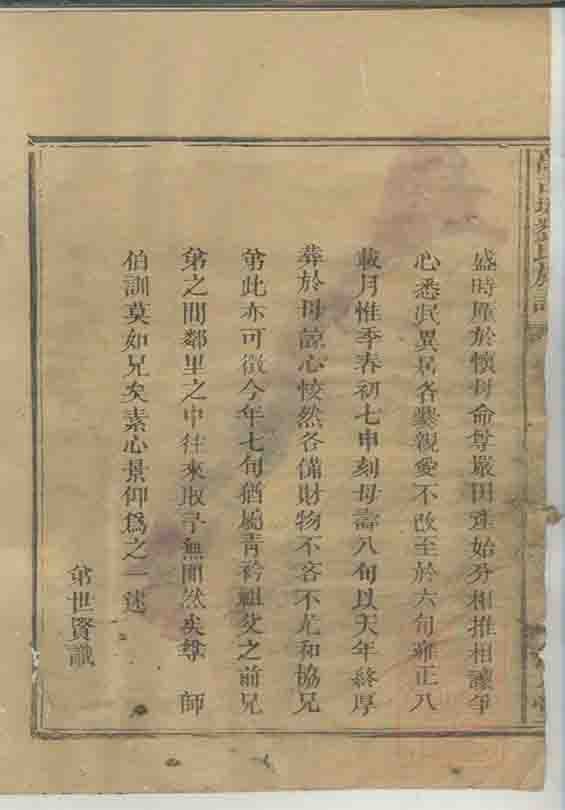 盛時厪於懷母命尊嚴田產始分相推相讓爭
心悉泯異居各爨親愛不改至於六旬雍正八
載月惟季春初七申刻母壽八旬以天年終厚
葬於母諒心恔然各備財物不吝不尤和協兄
弟此亦可徵今年七旬猶屬青衿祖父之前兄
弟之間鄰里之中往來取予無間然矣尊 師
伯訓莫如兄矣素心景仰爲之一述
弟世賢識